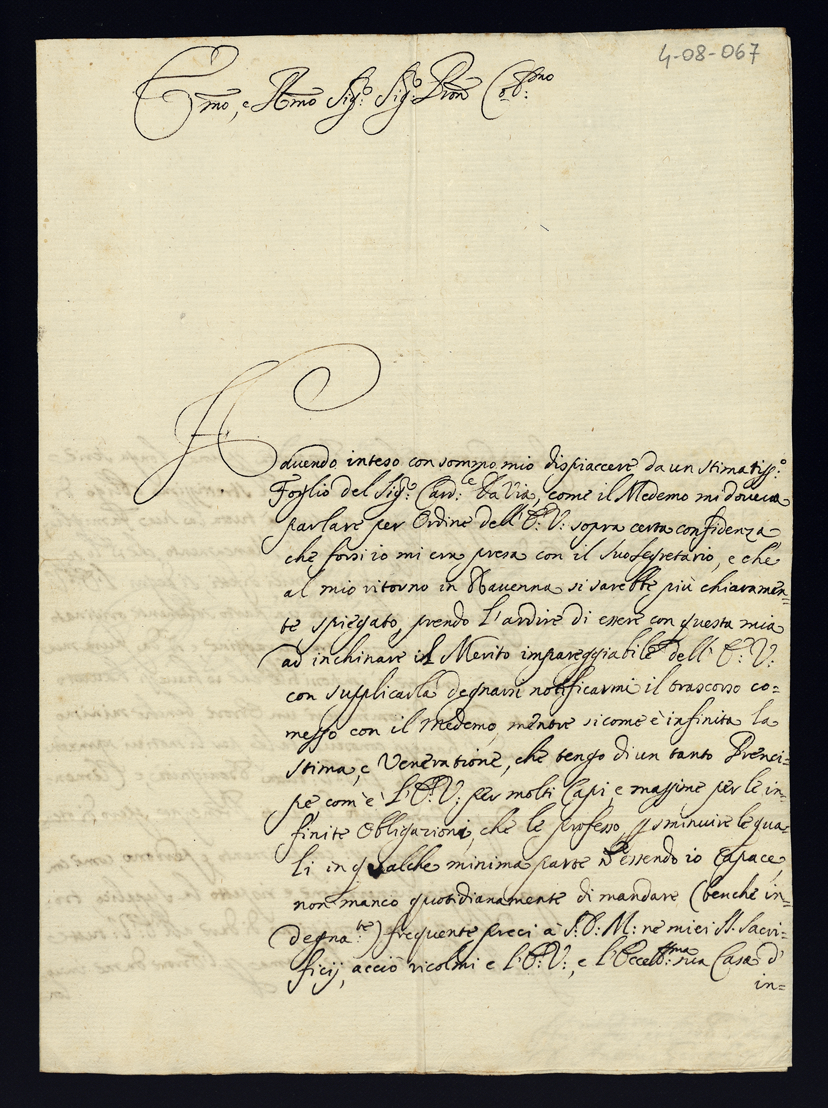 4-08-067
Emo, e Rmo Sig.r Sig.r Pron Col.mo
Havendo inteso con sommo mio dispiaccere da un stimatiss.o
Foglio del Sig.r Card.le DaVia, come il Medemo mi doveva
parlare per Ordine dell' E: V: sopra certa confidenza
che forsi io mi era presa con il suo segretario, e che
al mio ritorno in Ravenna si sarebbe più chiaramen=
te spiegato, prendo l'ardire di essere con questa mia
ad inchinare il Merito impareggiabile dell' E: V:
con supplicarla degnarsi notificarmi il trascorso co=
messo con il Medemo, mentre sicome è infinita la
stima, e Veneratione, che tengo di un tanto Prenci=
pe com'è l'E: V: per molti Capi, e massime per le in=
finite Obligazioni, che le professo, sminuire le qua=
li in qualche minima parte essendo io Capace,
non manco quotidianamente di mandare (benche in=
degna.te) frequente preci à S: D: M: ne miei SS. Sacri=
ficij, acciò ricolmi e l'E: V:, e l'Eccell.ma sua Casa d'
in=